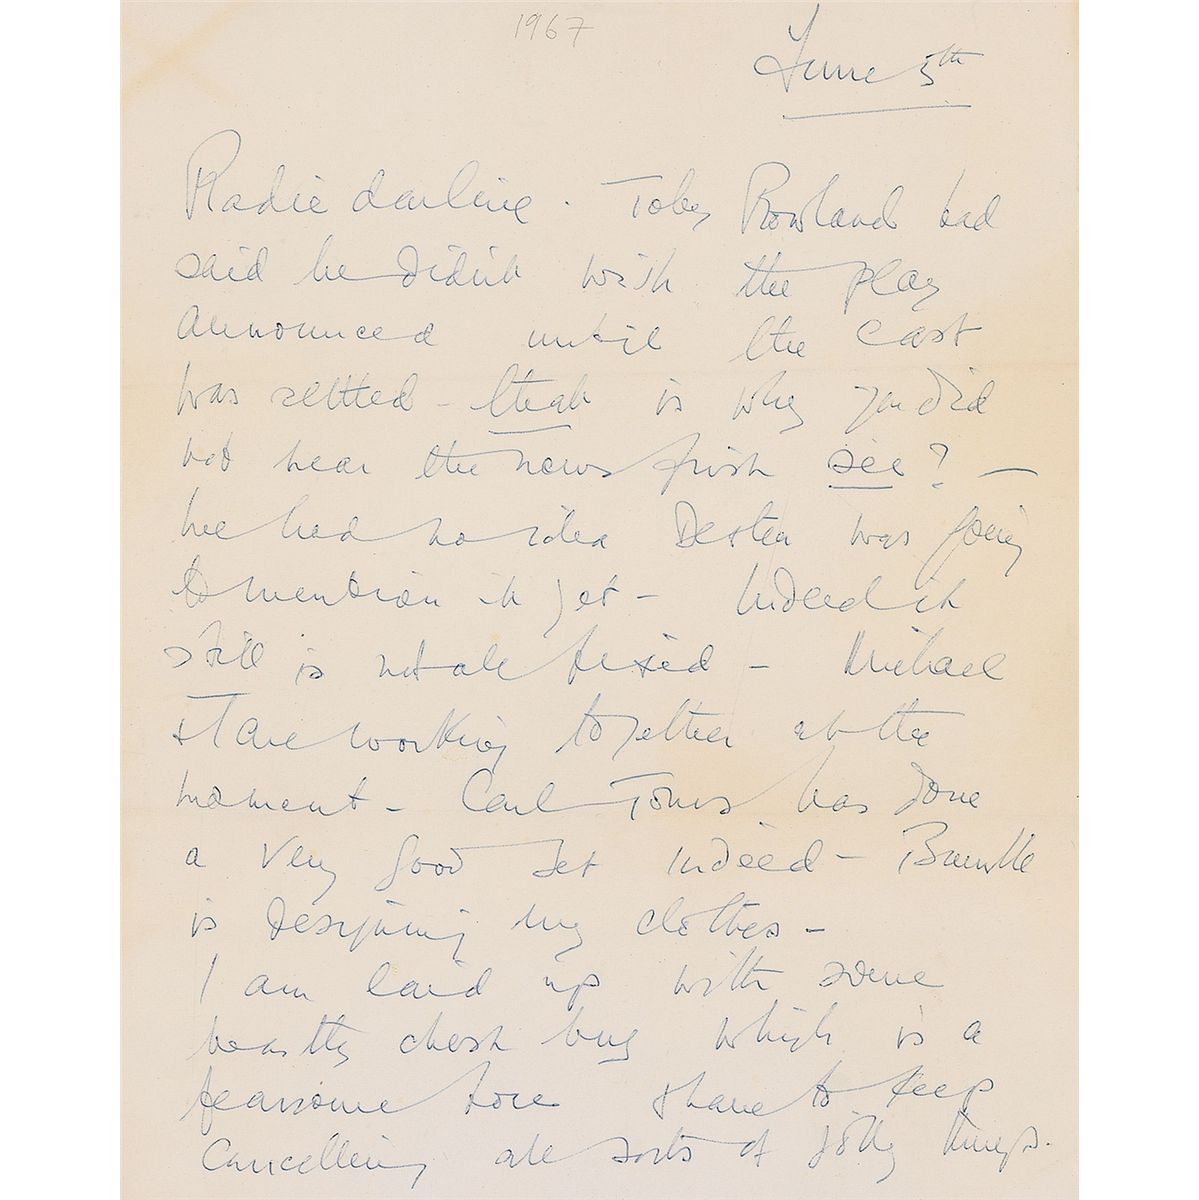 1967
June 5th
Radie darling. Toby Rowland had
said he didnt wish the play
announced until the cast
was settled - that is why you did
not hear the news first see? -
he had no idea Dexter was going
to mention it yet - Indeed it
still is not all fixed - Michael
+ I are working together at the
moment - Carl Toms has done
a very good set indeed -
is designing my clothes -
I am laid up with some
beastly chest bug which is a
fearsome bore + I have to keep
cancelling all sorts of jolly things.